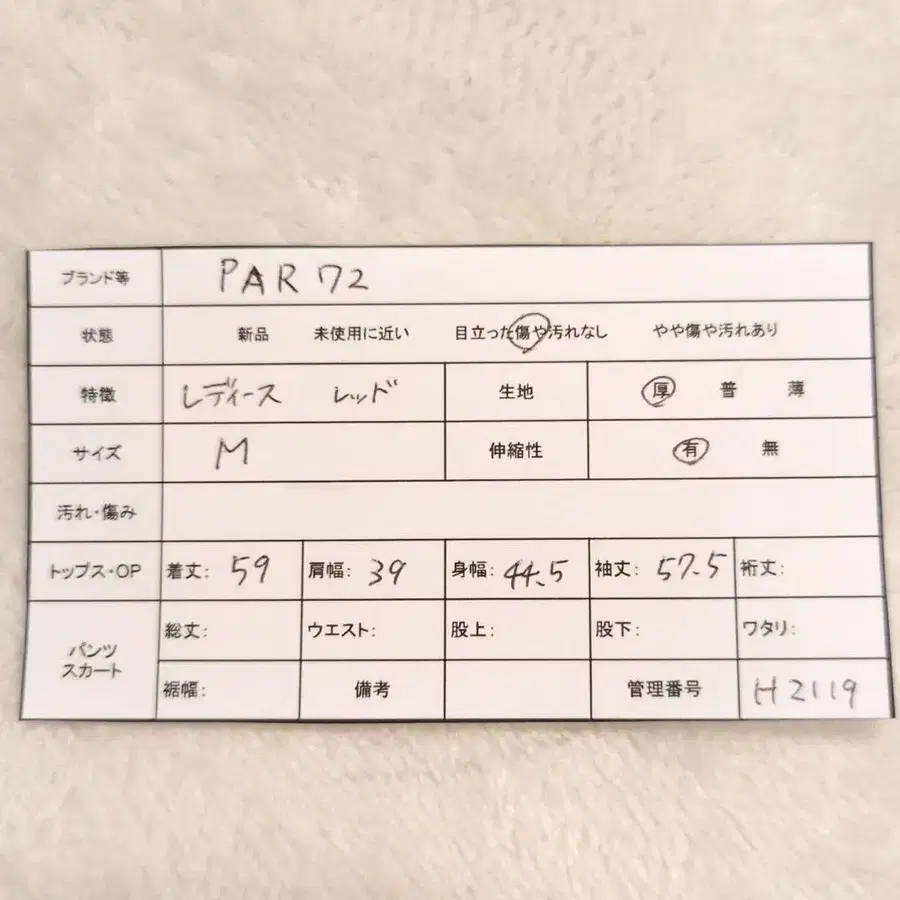 ブランド等 PAR 72
状態 新品 未使用に近い 目立った傷や汚れなし やや傷や汚れあり
特徴 レディース レッド 生地 厚 普 薄
サイズ M 伸縮性 有 無
汚れ・傷み
トップス・OP 着丈: 59 肩幅: 39 身幅: 44.5 袖丈: 57.5 裄丈:
パンツ
スカート
総丈: ウエスト: 股上: 股下: ワタリ:
裾幅: 備考 管理番号 H2119